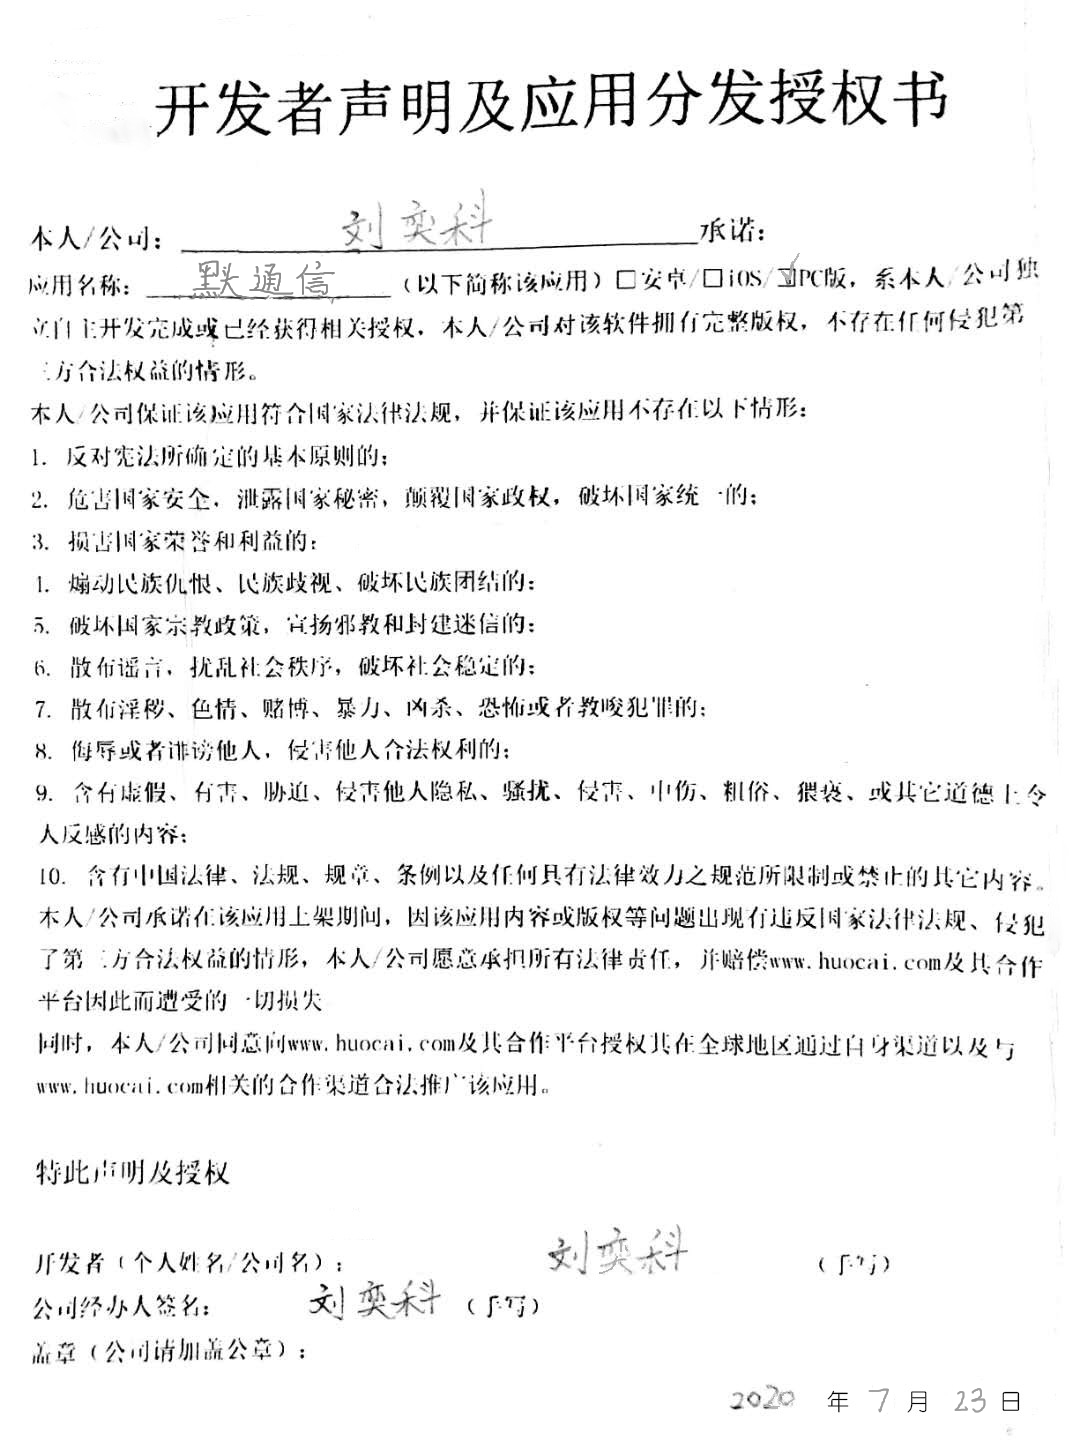 开发者声明及应用分发授权书
本人/公司：刘奕科承诺：
应用名称：默通信（以下简称该应用）□安卓/□iOS/☑PC版，系本人/公司独
立自主开发完成或已经获得相关授权，本人/公司对该软件拥有完整版权，不存在任何侵犯第
三方合法权益的情形。
本人/公司保证该应用符合国家法律法规，并保证该应用不存在以下情形：
1. 反对宪法所确定的基本原则的；
2. 危害国家安全，泄露国家秘密，颠覆国家政权，破坏国家统一的；
3. 损害国家荣誉和利益的；
4. 煽动民族仇恨、民族歧视、破坏民族团结的；
5. 破坏国家宗教政策，宣扬邪教和封建迷信的；
6. 散布谣言，扰乱社会秩序，破坏社会稳定的；
7. 散布淫秽、色情、赌博、暴力、凶杀、恐怖或者教唆犯罪的；
8. 侮辱或者诽谤他人，侵害他人合法权利的；
9. 含有虚假、有害、胁迫、侵害他人隐私、骚扰、侵害、中伤、粗俗、猥亵、或其它道德上令
人反感的内容；
10. 含有中国法律、法规、规章、条例以及任何具有法律效力之规范所限制或禁止的其它内容。
本人/公司承诺在该应用上架期间，因该应用内容或版权等问题出现有违反国家法律法规、侵犯
了第三方合法权益的情形，本人/公司愿意承担所有法律责任，并赔偿www.huocai.com及其合作
平台因此而遭受的一切损失
同时，本人/公司同意向www.huocai.com及其合作平台授权其在全球地区通过自身渠道以及与
www.huocai.com相关的合作渠道合法推广该应用。
特此声明及授权
开发者（个人姓名/公司名）：刘奕科（手写）
公司经办人签名：刘奕科（手写）
盖章（公司请加盖公章）：
2020 年 7 月 23 日